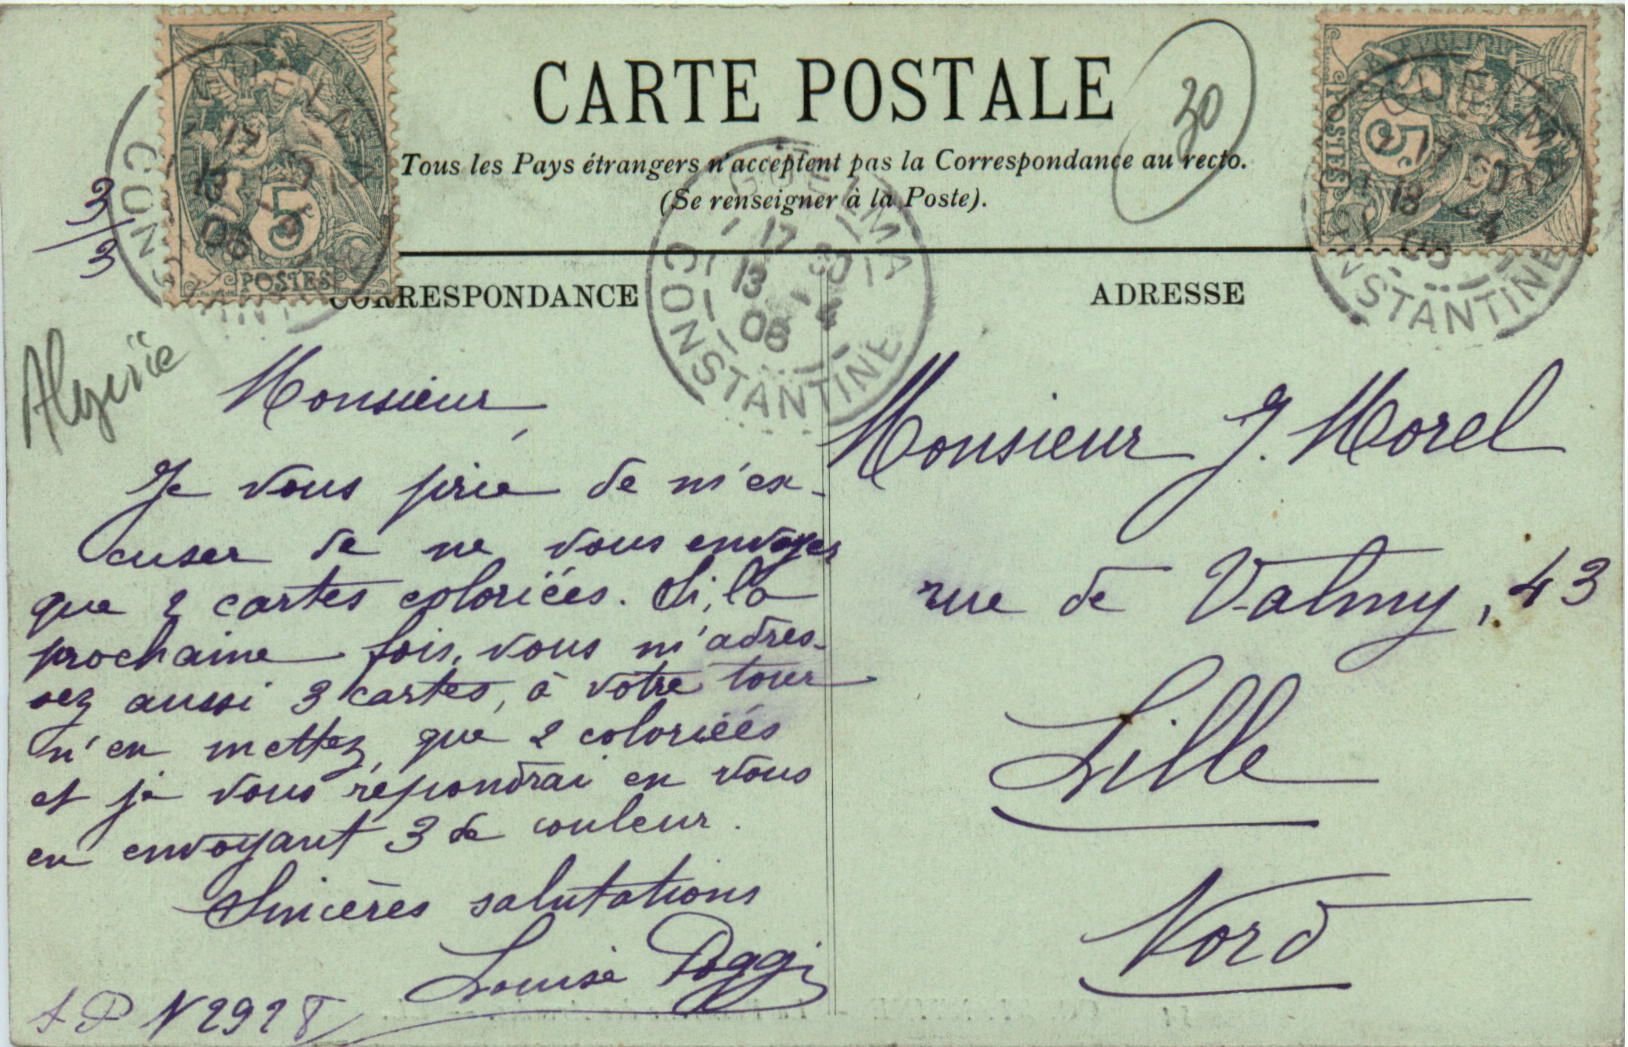 CARTE POSTALE
30
Tous les Pays étrangers n'acceptent pas la Correspondance au recto.
(Se renseigner à la Poste).
3/3
5
POSTES
CONSTANTINE
GUELMA
17 30
13 4
06
CONSTANTINE
5
POSTES
GUELMA
CONSTANTINE
CORRESPONDANCE
ADRESSE
Algérie
Monsieur
Je vous prie de m'ex-
cuser de ne vous envoyer
que 2 cartes coloriées. Si, la
prochaine fois, vous m'adres-
sez aussi 3 cartes, à votre tour
n'en mettez que 2 coloriées
et je vous répondrai en vous
en envoyant 3 de couleur.
Sincères salutations
Louise Poggi
Monsieur J. Morel
rue de Valmy, 43
Lille
Nord